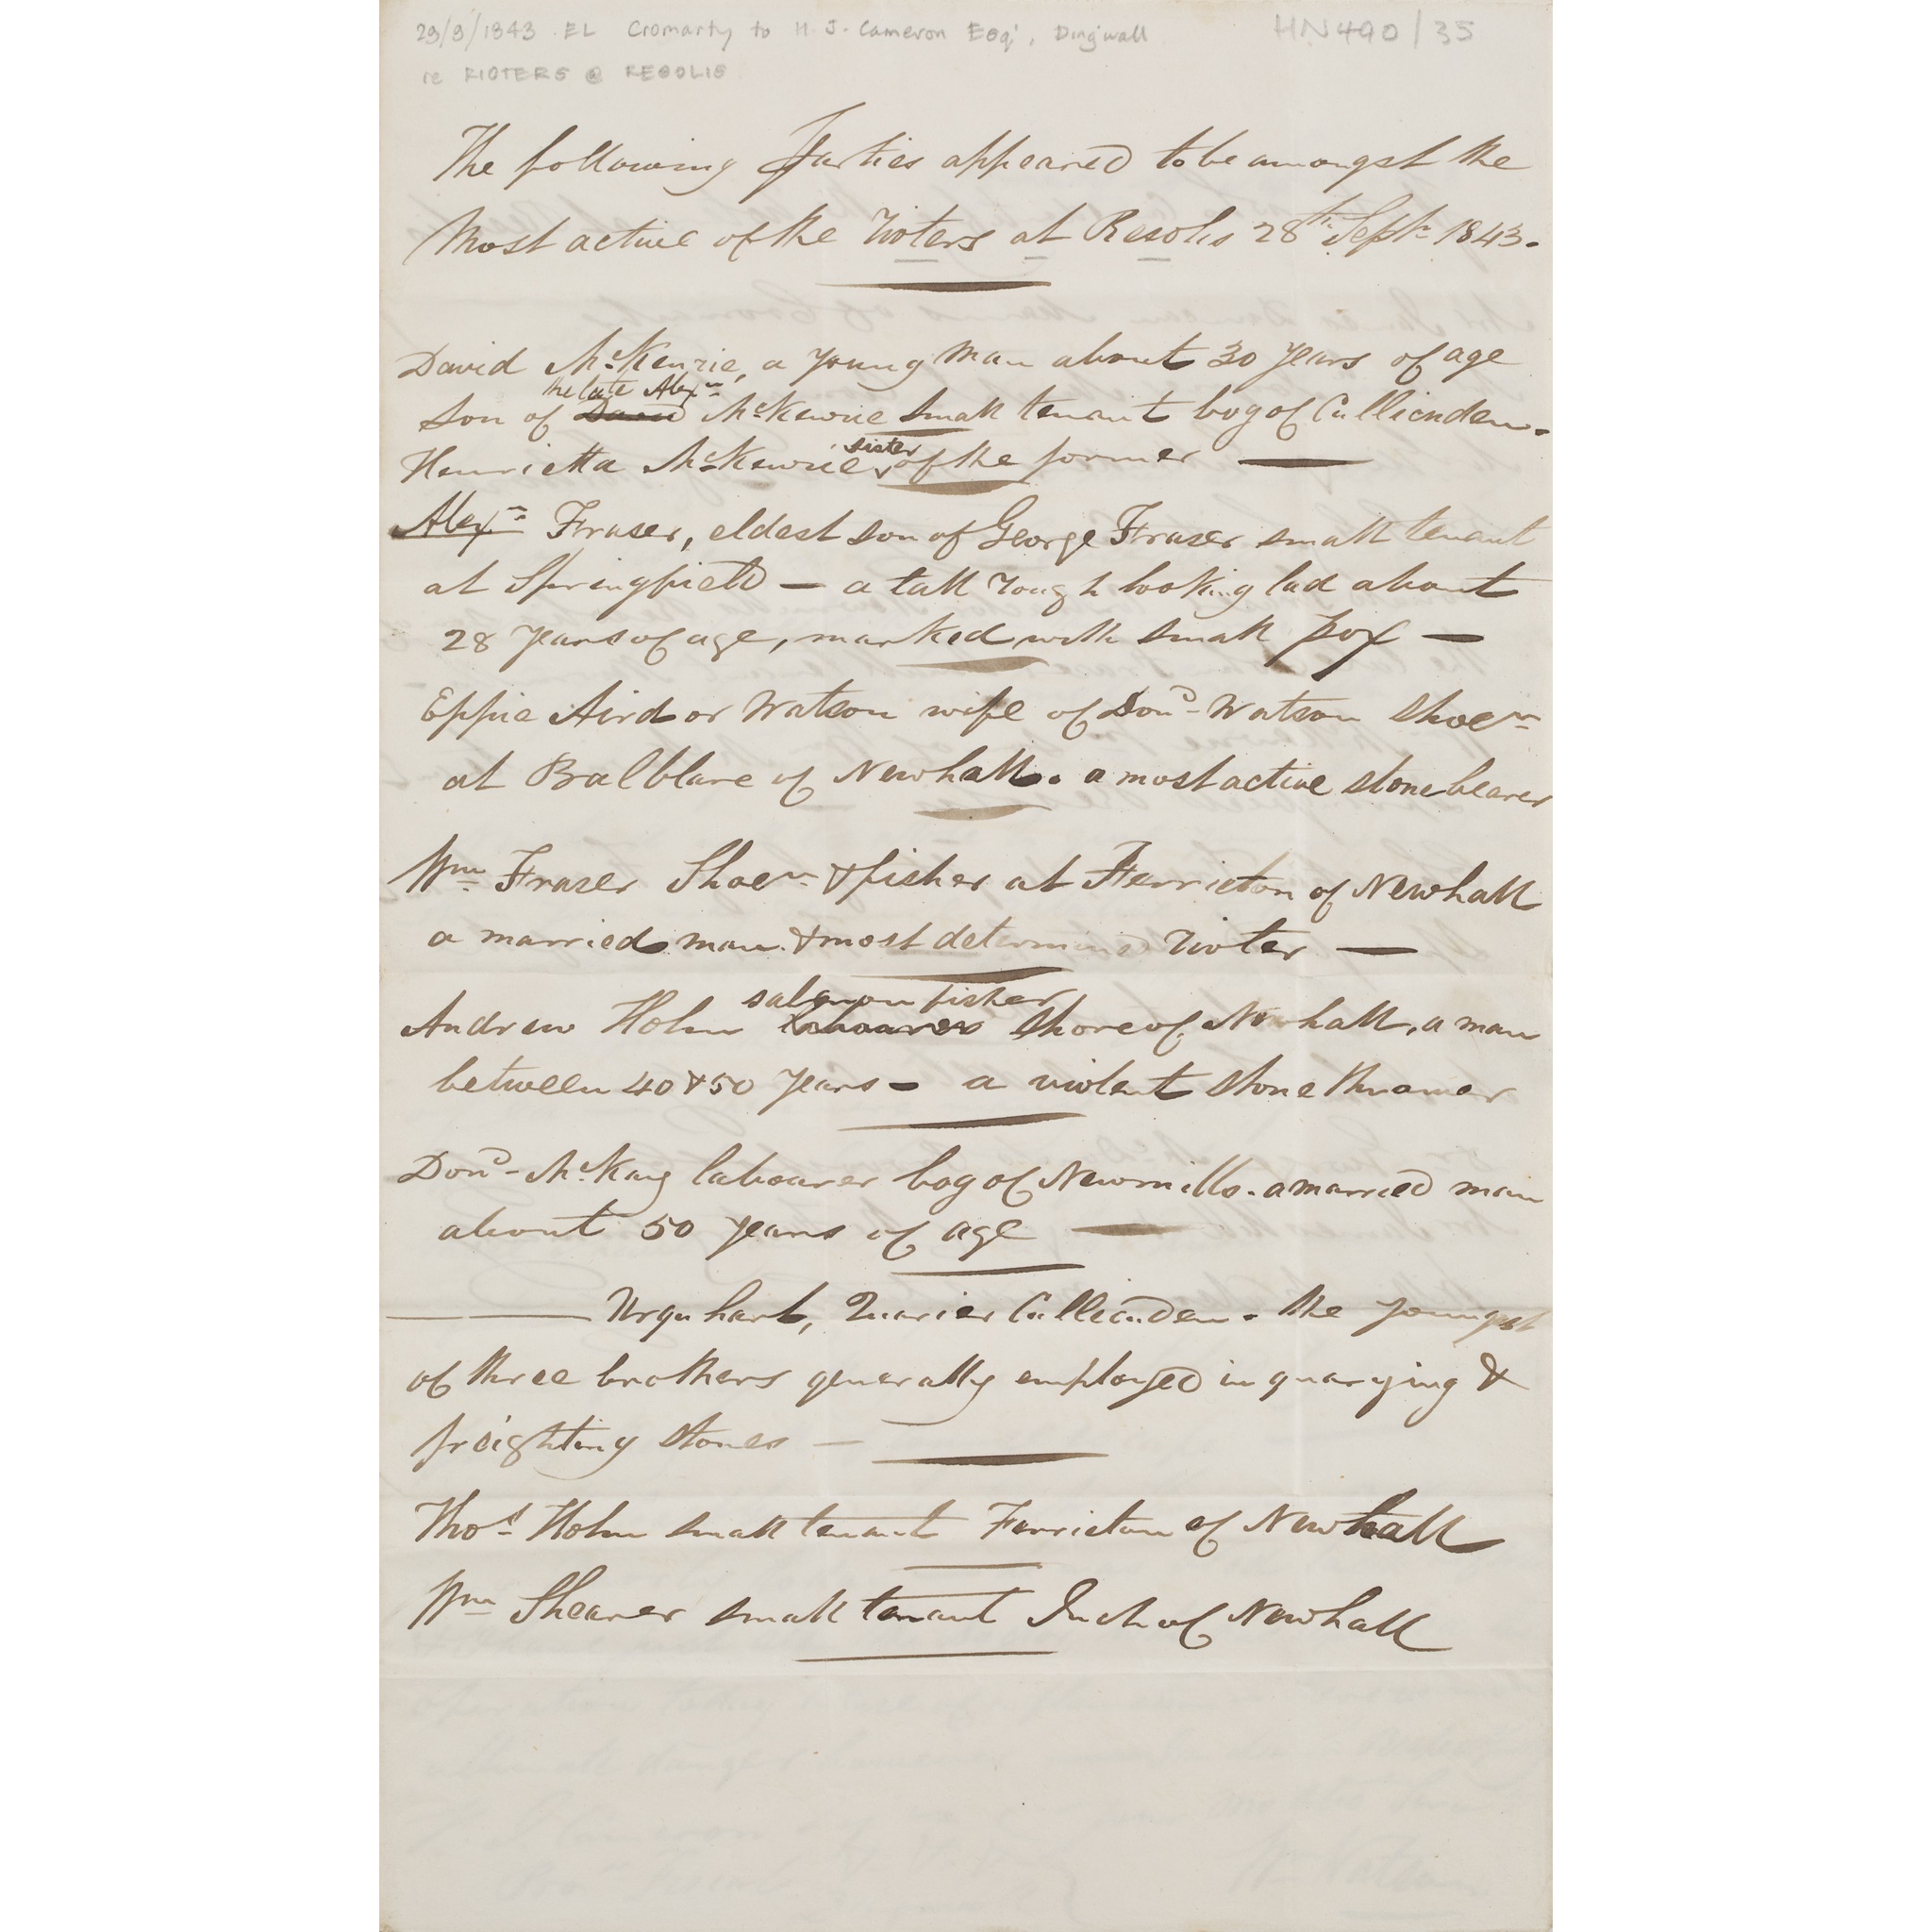 29/9/1843 EL Cromarty to H. J. Cameron Esqr, Dingwall HN490/35
re RIOTERS @ RESOLIS
The following Parties appeared to be amongst the
Most active of the rioters at Resolis 28th Septr 1843.
David McKenzie, a young man about 30 years of age
the late Alexr
son of David McKenzie small tenant bog of Cullicuden.
sister
Henrietta McKenzie, of the former —
Alexr Fraser, eldest son of George Fraser small tenant
at Springfield — a tall rough looking lad about
28 years of age, marked with small pox —
Eppie Aird or Watson wife of Dond Watson Shoer
at Balblare of Newhall. a most active stone bearer
Wm Fraser Shoer & fisher at Ferrieton of Newhall
a married man & most determined rioter —
salmon fisher
Andrew Holm labourer shore of Newhall, a man
between 40 & 50 years – a violent stone thrower
Dond McKay labourer bog of Newmills. a married man
about 50 years of age —
— Urquhart, Quarier Cullicuden. the youngest
of three brothers generally employed in quarying &
freighting stones —
Thos Holm small tenant Ferrieton of Newhall
Wm Shearer small tenant Inch of Newhall